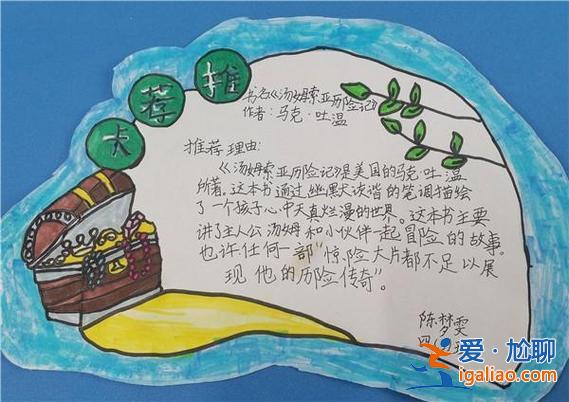 推荐卡
书名《汤姆索亚历险记》
作者：马克·吐温
推荐理由：
《汤姆索亚历险记》是美国的马克·吐温
所著。这本书通过幽黑犬诙谐的笔调描绘
了一个孩子心中天真烂漫的世界。这本书主要
讲了主人公汤姆和小伙伴一起冒险的故事。
也许任何一部“惊险大片都不足以展
现他的历险传奇”。
陈梦雯
四
爱·尴聊
igaliao.com